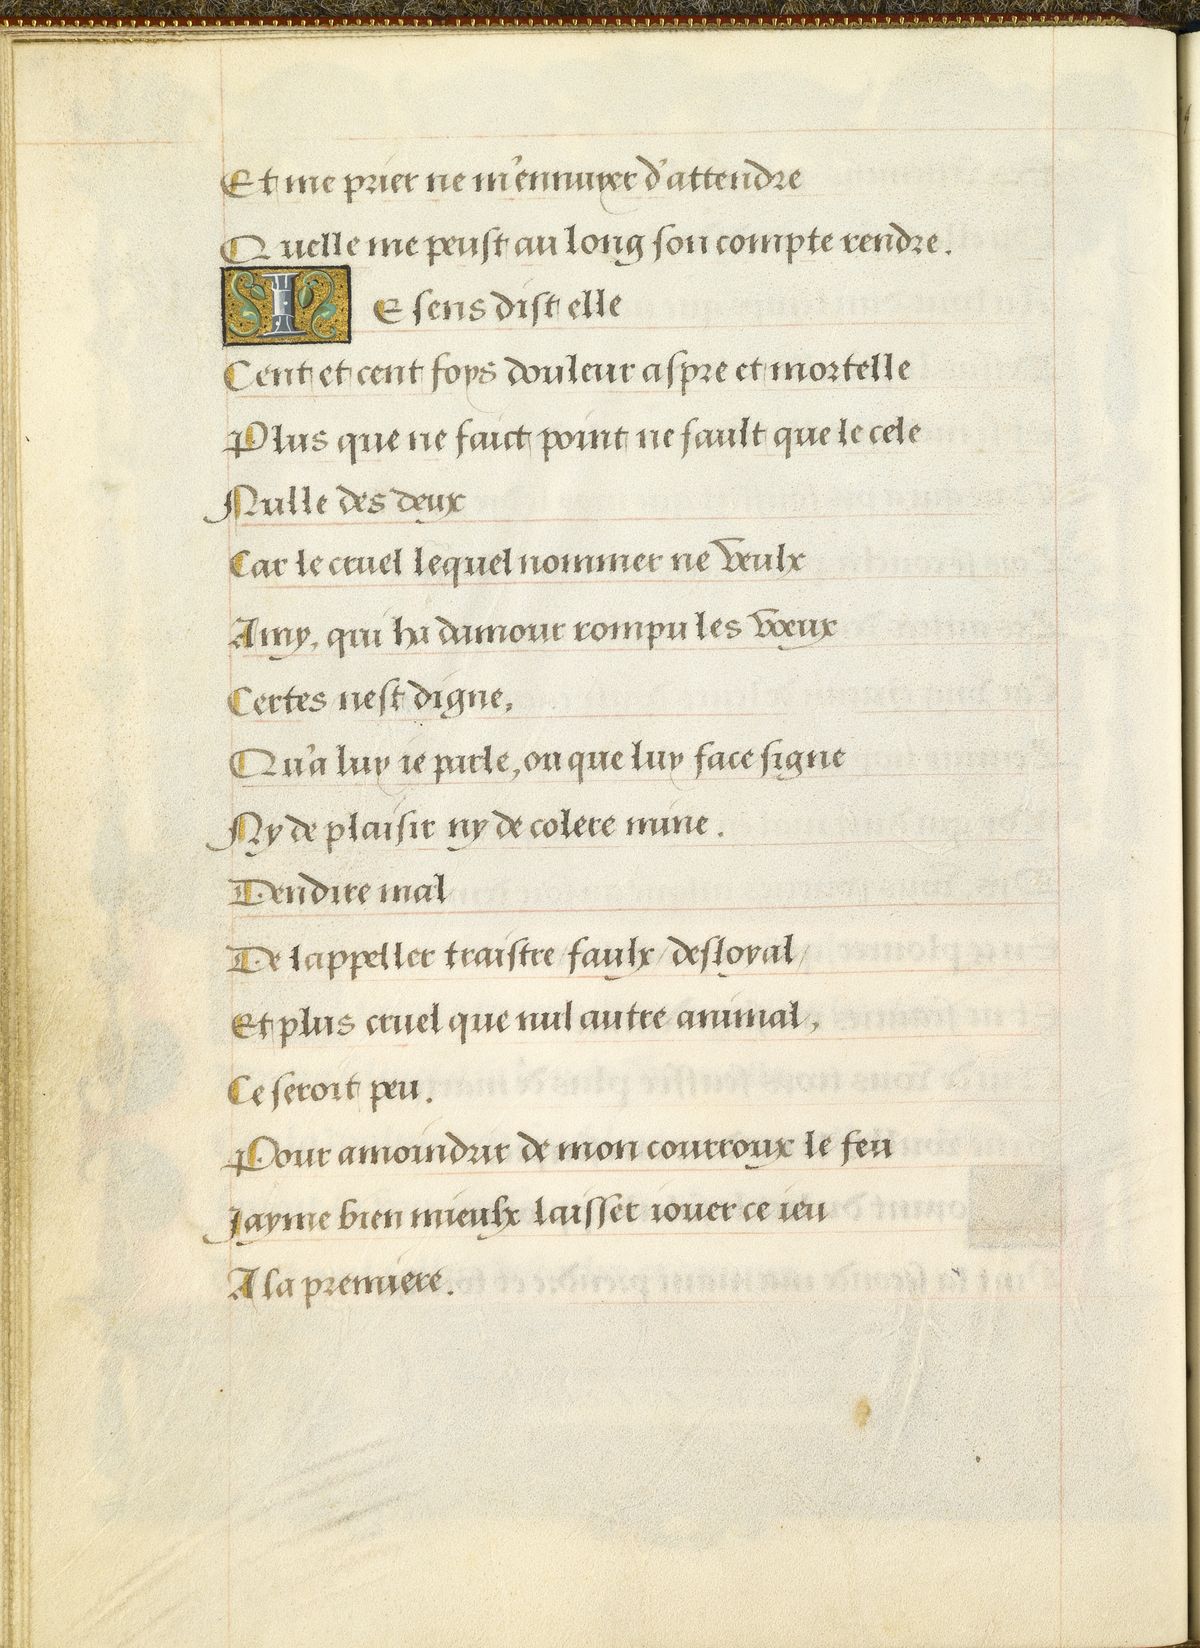 Et me prier ne m'ennuyer d'attendre
Quelle me peust au long son compte rendre.
IE sens dist elle
Cent et cent foys douleur aspre et mortelle
Plus que ne faict point ne fault que le cele
Nulle des deux
Car le cruel lequel nommer ne veulx
Amy, qui ha damour rompu les voeux
Certes nest digne,
Qu'a luy ie parle, ou que luy face signe
Ny de plaisir ny de colere mine.
Den dire mal
De lappeller traistre/faulx/desloyal/
Et plus cruel que nul autre animal,
Ce seroit peu.
Pour amoindrir de mon courroux le feu
Jayme bien mieulx laisser iouer ce ieu
A la premiere.